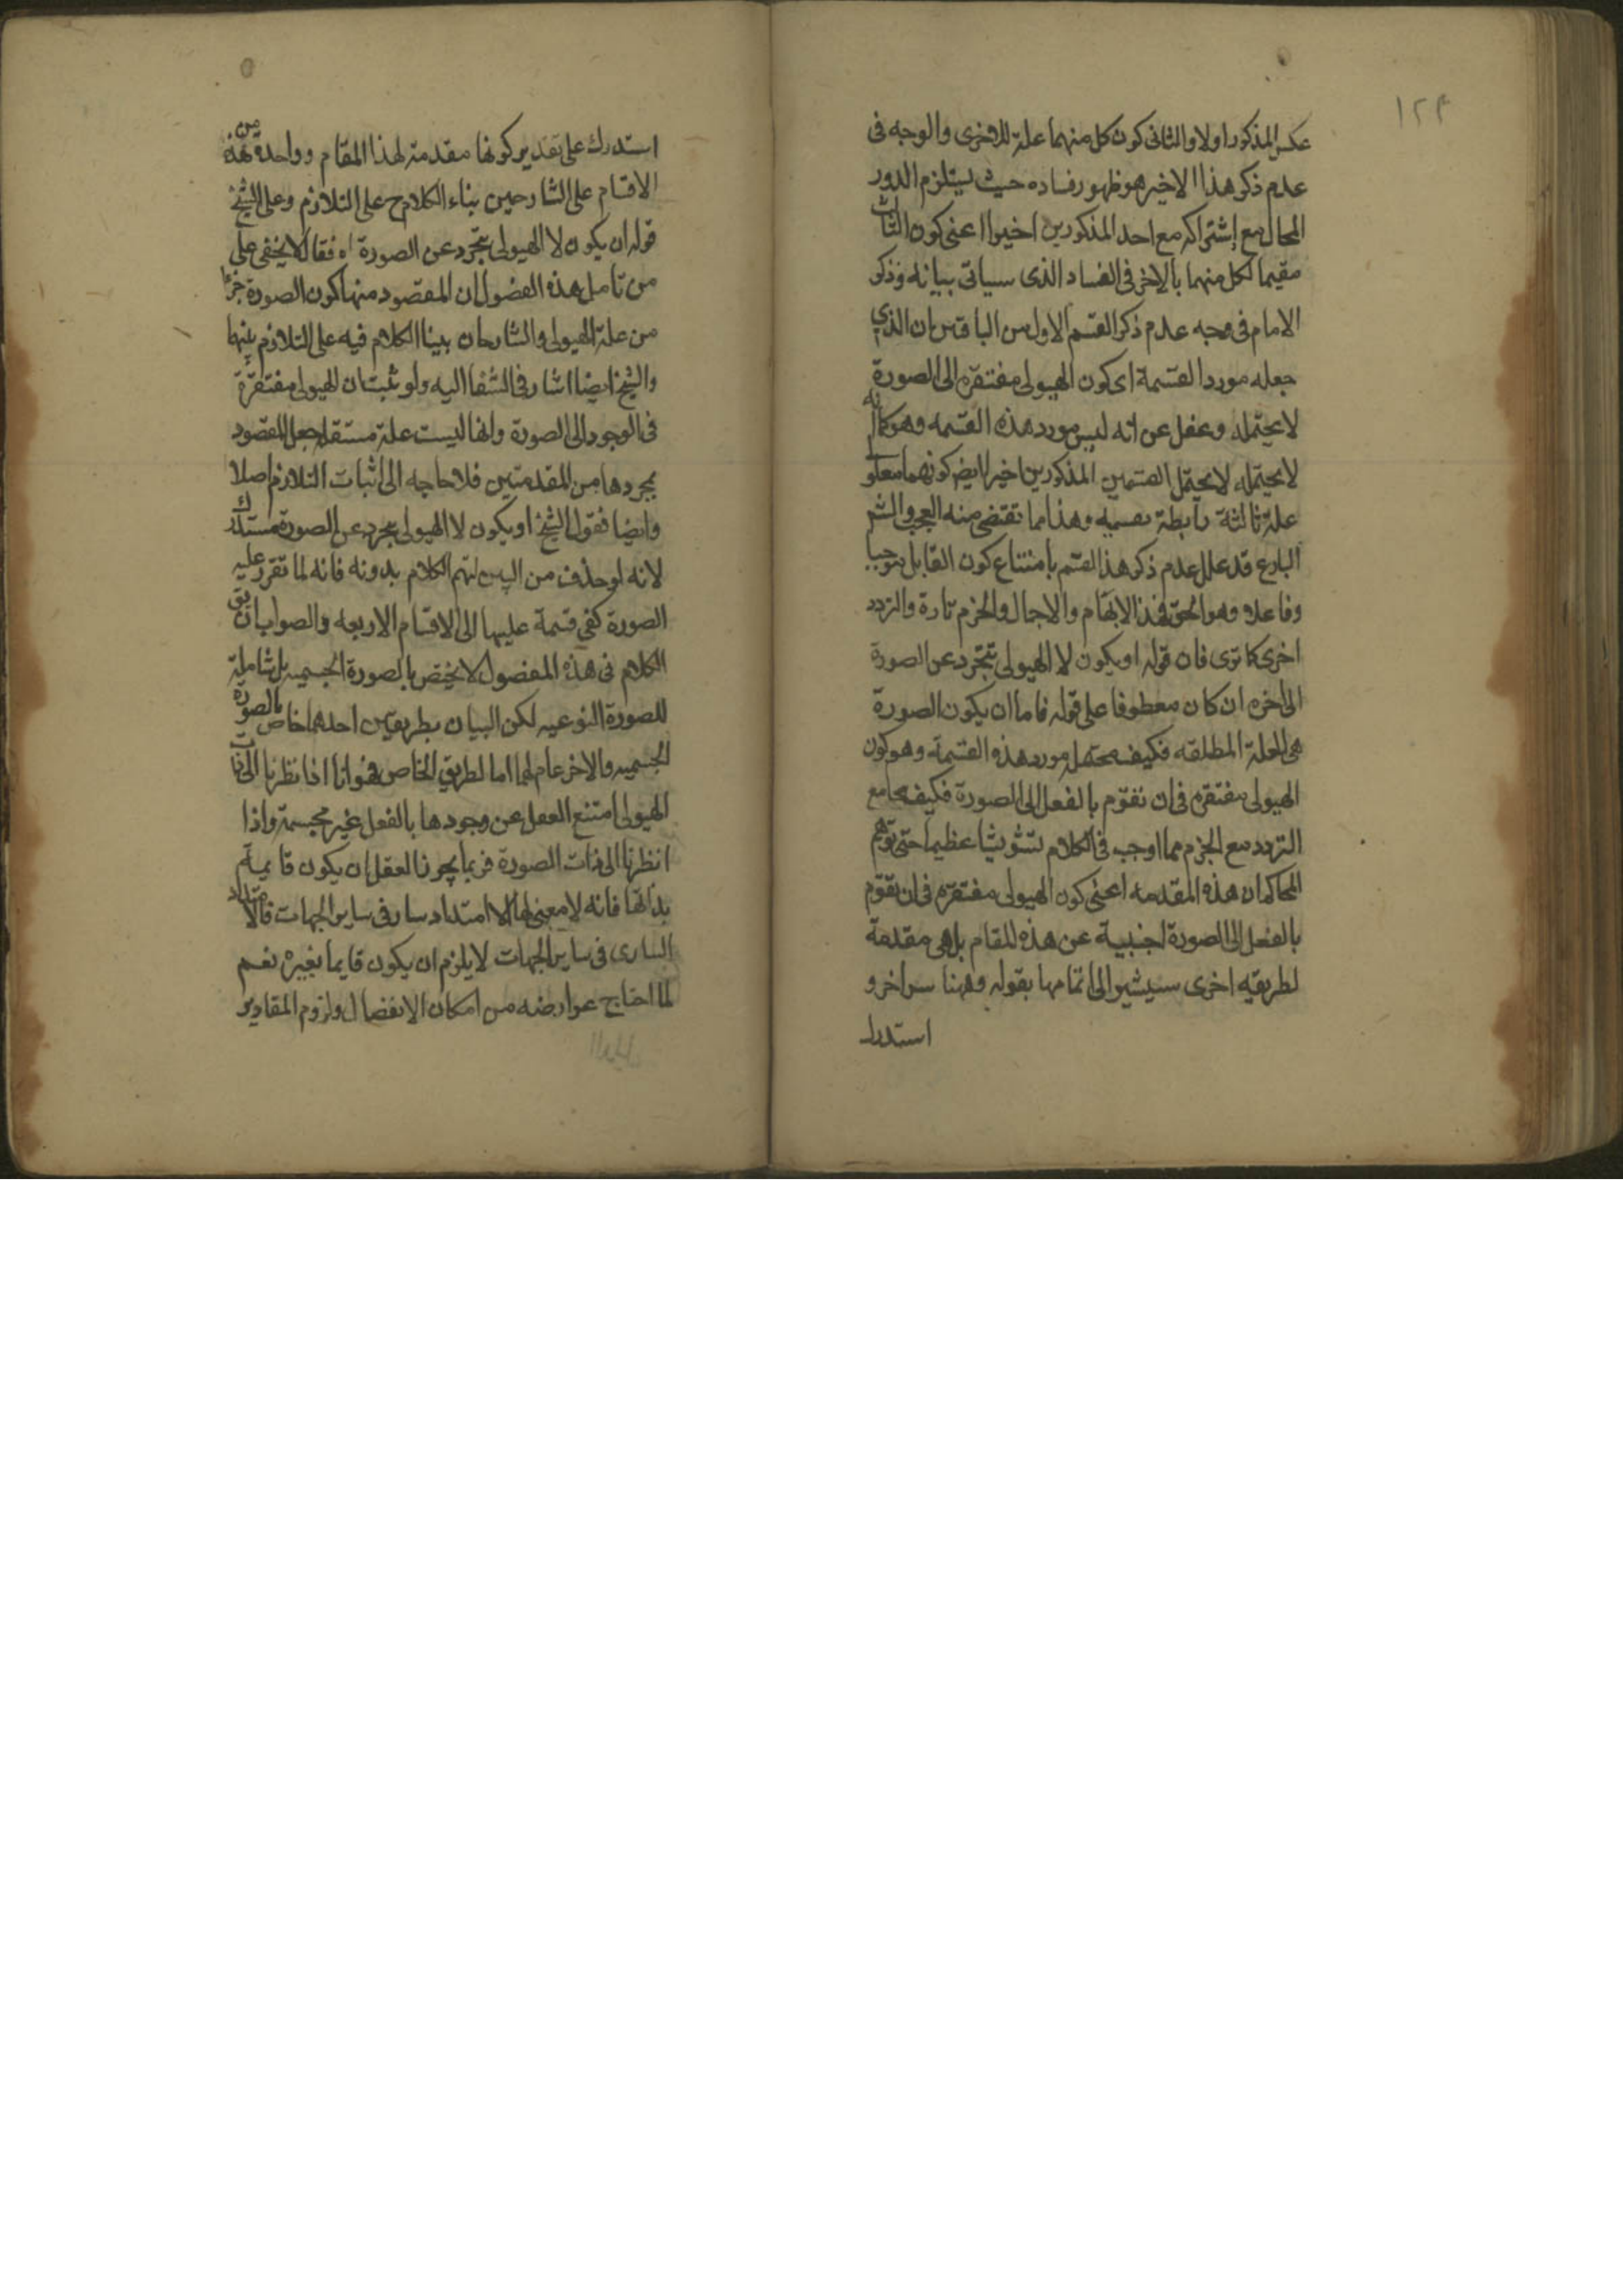 ١٢٤
عكس المذكور اولا والثانى كون كل منهما علة للاخرى والوجه فى
عدم ذكر هذا الاخير هو ظهور فساده حيث يستلزم الدور
المحال مع اشتراكه مع احد المذكورين اخيرا اعنى كون الثالث
مقيما لكل منهما بالاخر فى الفساد الذى سياتى بيانه وذكر
الامام فى وجه عدم ذكر القسم الاول من الباقيين ان الذي
جعله مورد القسمة اى كون الهيولى مفتقره الى الصورة
لا يحتمله وغفل عن انه ليس مورد هذه القسمه وهو كما انه
لا يحتمله لا يحتمل القسمين المذكورين اخيرا ايض كونهما معلولى
علة ثالثة رابطة بقسميه وهذا مما تقتضى منه العجب والشم
البارع قد علل عدم ذكر هذا القسم بامتناع كون القابل موجبا
وفاعلا وهو الحق فهذا الابهام والاجمال والجزم تارة والتردد
اخرى كما ترى فان قوله او يكون لا الهيولى تتجرد عن الصورة
الى اخره ان كان معطوفا على قوله فاما ان يكون الصورة
هى العلة المطلقه فكيف يحتمله مورد هذه القسمة وهو كون
الهيولى مفتقره فى ان تقوم بالفعل الى الصورة فكيف يجامع
التردد مع الجزم مما اوجب فى الكلام تشويشا عظيما حتى توهم
المحاكم ان هذه المقدمه اعنى كون الهيولى مفتقره فى ان تقوم
بالفعل الى الصورة اجنبية عن هذه المقام بل هى مقدمة
لطريقه اخرى سيشير الى اتمامها بقوله وههنا سر اخر و
استدرك
استدرك على تقدير كونها مقدمة لهذا المقام وواحدة من هذه
الاقسام على الشارحين بناء الكلام ح على التلازم وعلى الشيخ
قوله ان يكون لا الهيولى تتجرد عن الصورة اه فقال لا يخفى على
من تامل هذه الفصول ان المقصود منها كون الصورة جزءا
من علة الهيولى والشارحان بينا الكلام فيه على التلازم بينهما
والشيخ ايضا اشار فى الشفا اليه ولو ثبت ان الهيولى مفتقرة
فى الوجود الى الصورة وانها ليست علة مستقله حصل المقصود
بمجردها من المقدمتين فلا حاجه الى اثبات التلازم اصلا
وايضا فقول الشيخ او يكون لا الهيولى يتجرد عن الصورة مستدرك
لانه لو حذف من البين لتم الكلام بدونه فانه لما تقرر عليه
الصورة كفى قسمة عليها الى الاقسام الاربعه والصواب ان يق
الكلام فى هذه الفصول لا يختص بالصورة الجسميه بل شاملة
للصورة النوعيه لكن البيان بطريقين احدهما خاص بالصورة
الجسميه والاخر عام لهما اما لطريق الخاص فهو انا اذا نظرنا الى ذات
الهيولى امتنع العقل عن وجودها بالفعل غير مجسمة واذا
انظرنا الى ذات الصورة فربما يجوز العقل ان يكون قايمة
بذاتها فانه لا معنى لها الا امتداد سار فى ساير الجهات فالامتداد
السارى فى ساير الجهات لا يلزم ان يكون قايما بغيره نعم
لما احتاج عوارضه من امكان الانفصال ولزوم المقادير